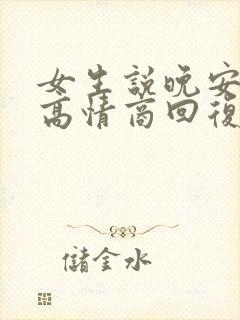 女生説晚安
高情商回復
儲金水